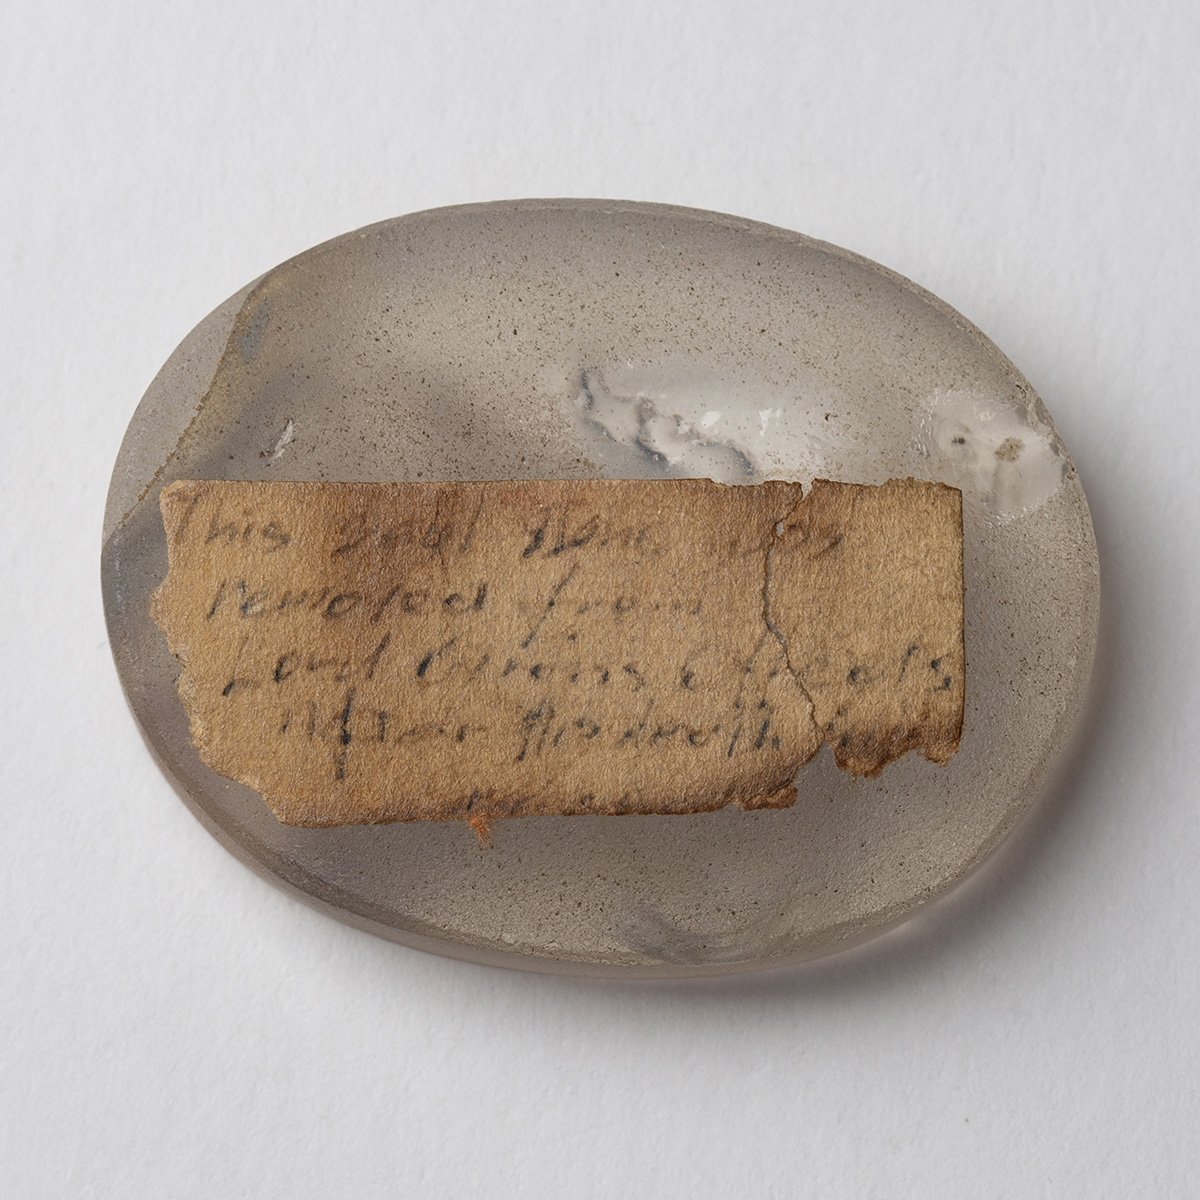 This Seal Stone was
removed from
Lord Byrons effects
After his death